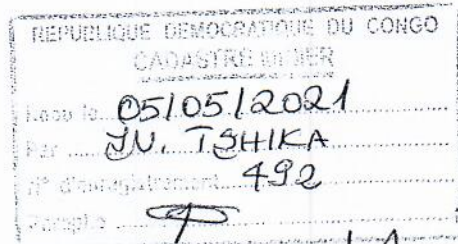 REPUBLIQUE DEMOCRATIQUE DU CONGO
CADASTRE MINIER
Reçu le 05/05/2021
Par JN. TSHIKA
N° d'enregistrement 492
Paraphe